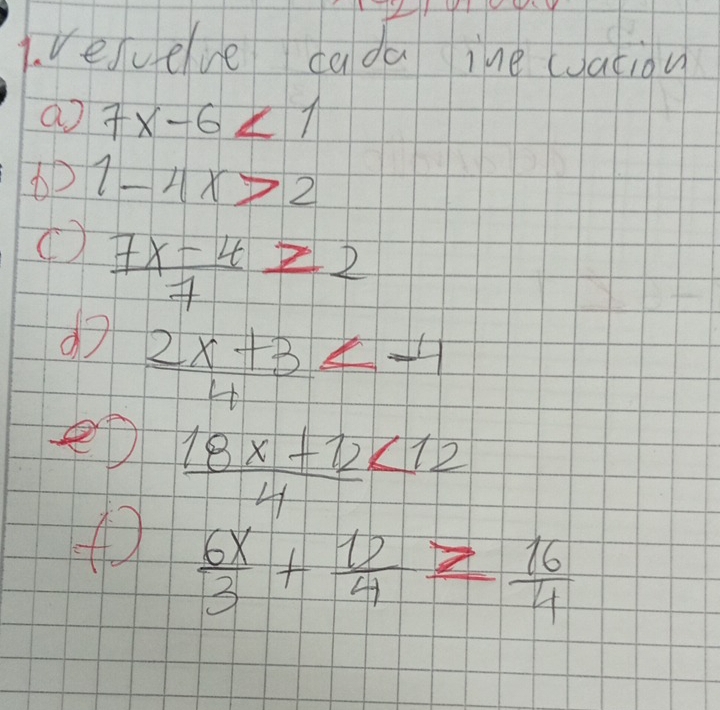 1. resuelve cada inecuacion
a) 7x - 6 < 1
b) 1 - 4x > 2
c) 7x - 4 / 7 ≥ 2
d) 2x + 3 / 4 < -4
e) 18x + 12 / 4 < 12
f) 6x / 3 + 12 / 4 ≥ 16 / 4